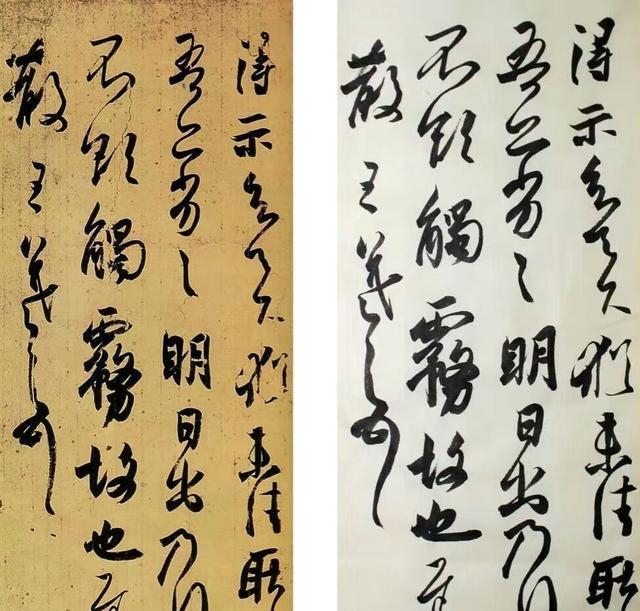 得示知足下猶未佳耿
吾亦劣々明日出乃行
不欲觸霧故也遲
散王羲之頓首
得示知足下猶未佳耿
吾亦劣々明日出乃行
不欲觸霧故也遲
散王羲之頓首